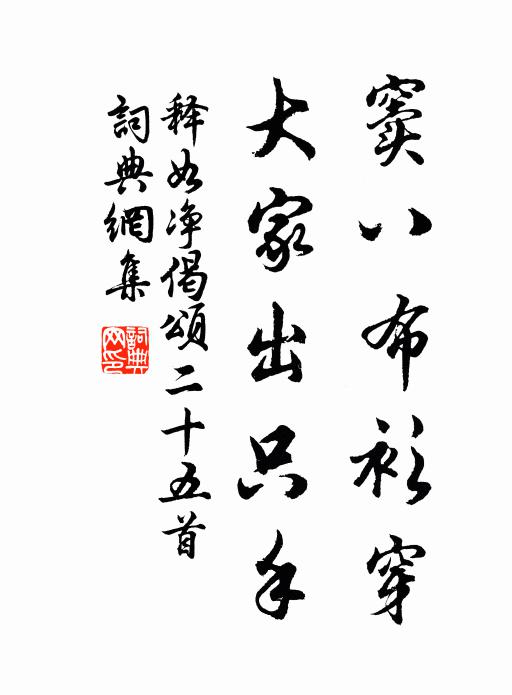 窦八布衫穿
大家出只手
释如净偈颂二十五首
詞典網集
詞典网印